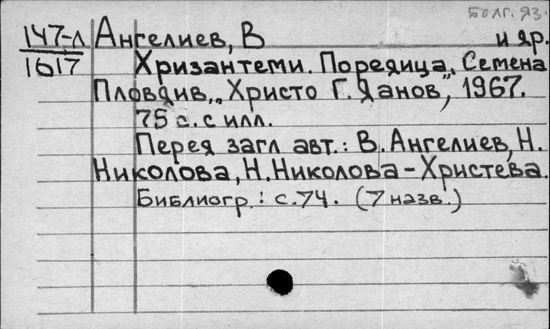 Болг. яз.
147-л Ангелиев, В и др.
1617 Хризантеми. Поредица „Семена
Пловдив, „Христо Г. Данов", 1967.
75 с. с илл.
Перед загл авт.: В. Ангелиев, Н.
Николова, Н. Николова-Христева.
Библиогр.: с. 74. (7 назв.)